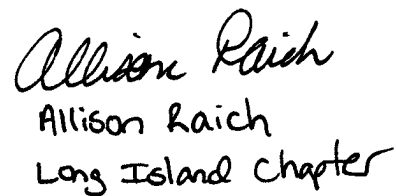 Allison Raich
Allison Raich
Long Island Chapter